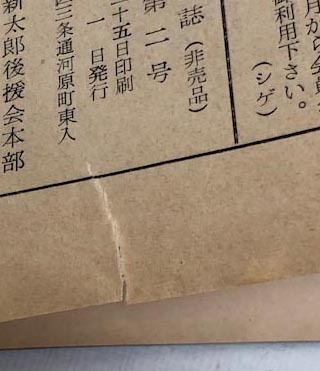 月から会
利用下さい。
(シゲ)
誌(非売品)
第二号
十五日印刷
一日発行
三条通河原町東入
新太郎後援会本部